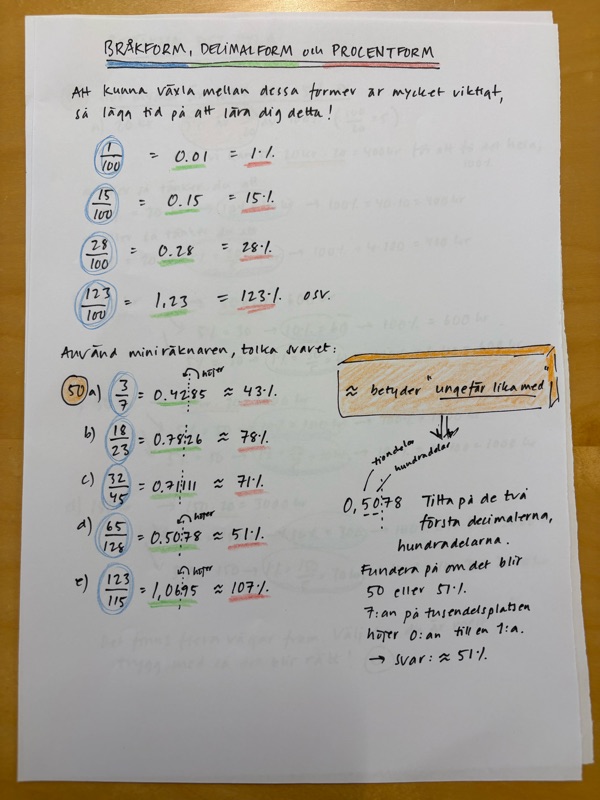 BRÅKFORM, DECIMALFORM och PROCENTFORM
Att kunna växla mellan dessa former är mycket viktigt,
så lägg tid på att lära dig detta!
1/100 = 0.01 = 1%
15/100 = 0.15 = 15%
28/100 = 0.28 = 28%
123/100 = 1,23 = 123% osv.
Använd miniräknaren, tolka svaret:
höjer
50 a) 3/7 = 0.4285 ≈ 43%
b) 18/23 = 0.7826 ≈ 78%
c) 32/45 = 0.71111 ≈ 71%
höjer
d) 65/128 = 0.5078 ≈ 51%
höjer
e) 123/115 = 1,0695 ≈ 107%
≈ betyder "ungefär lika med"
tiondelar
hundradelar
0,5078 Titta på de två
första decimalerna,
hundradelarna.
Fundera på om det blir
50 eller 51%.
7:an på tusendelsplatsen
höjer 0:an till en 1:a.
→ svar: ≈ 51%